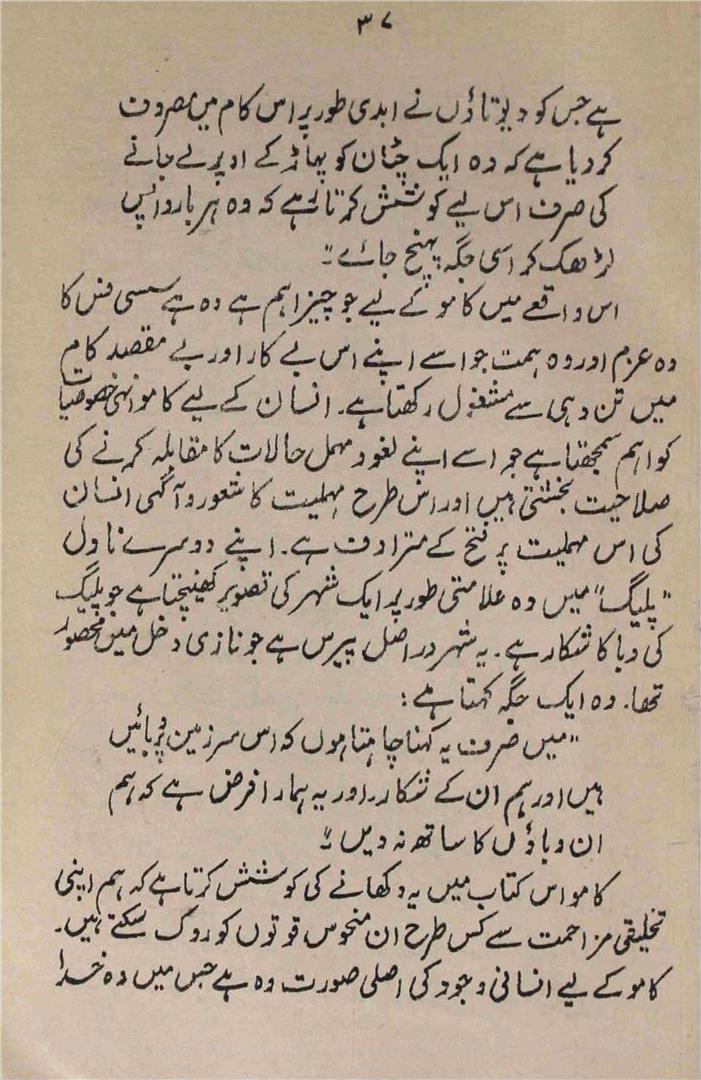 ۳۷
ہے جس کو دیوتاؤں نے ابدی طور پر اس کام میں مصروف
کر دیا ہے کہ وہ ایک چٹان کو پہاڑ کے اوپر لے جانے
کی صرف اس لیے کوشش کرتا ہے کہ وہ ہر بار واپس
لڑھک کر اسی جگہ پہنچ جائے ۔"
اس واقعے میں کامو کے لیے جو چیز اہم ہے وہ ہے سسی فس کا
وہ عزم اور وہ ہمت جو اسے اپنے اس بے کار اور بے مقصد کام
میں تن دہی سے مشغول رکھتا ہے۔ انسان کے لیے کامو انہی خصوصیات
کو اہم سمجھتا ہے جو اسے اپنے لغو و مہمل حالات کا مقابلہ کرنے کی
صلاحیت بخشتی ہیں اور اس طرح مہملیت کا شعور و آگہی انسان
کی اس مہملیت پر فتح کے مترادف ہے۔ اپنے دوسرے ناول
"پلیگ" میں وہ علامتی طور پر ایک شہر کی تصویر کھینچتا ہے جو پلیگ
کی وبا کا شکار ہے۔ یہ شہر دراصل پیرس ہے جو نازی دخل میں محصور
تھا۔ وہ ایک جگہ کہتا ہے :
"میں صرف یہ کہنا چاہتا ہوں کہ اس سرزمین پر وبائیں
ہیں اور ہم ان کے شکار۔ اور یہ ہمارا فرض ہے کہ ہم
ان وباؤں کا ساتھ نہ دیں ۔"
کامو اس کتاب میں یہ دکھانے کی کوشش کرتا ہے کہ ہم اپنی
تخلیقی مزاحمت سے کس طرح ان منحوس قوتوں کو روک سکتے ہیں۔
کامو کے لیے انسانی وجود کی اصلی صورت وہ ہے جس میں وہ خدا